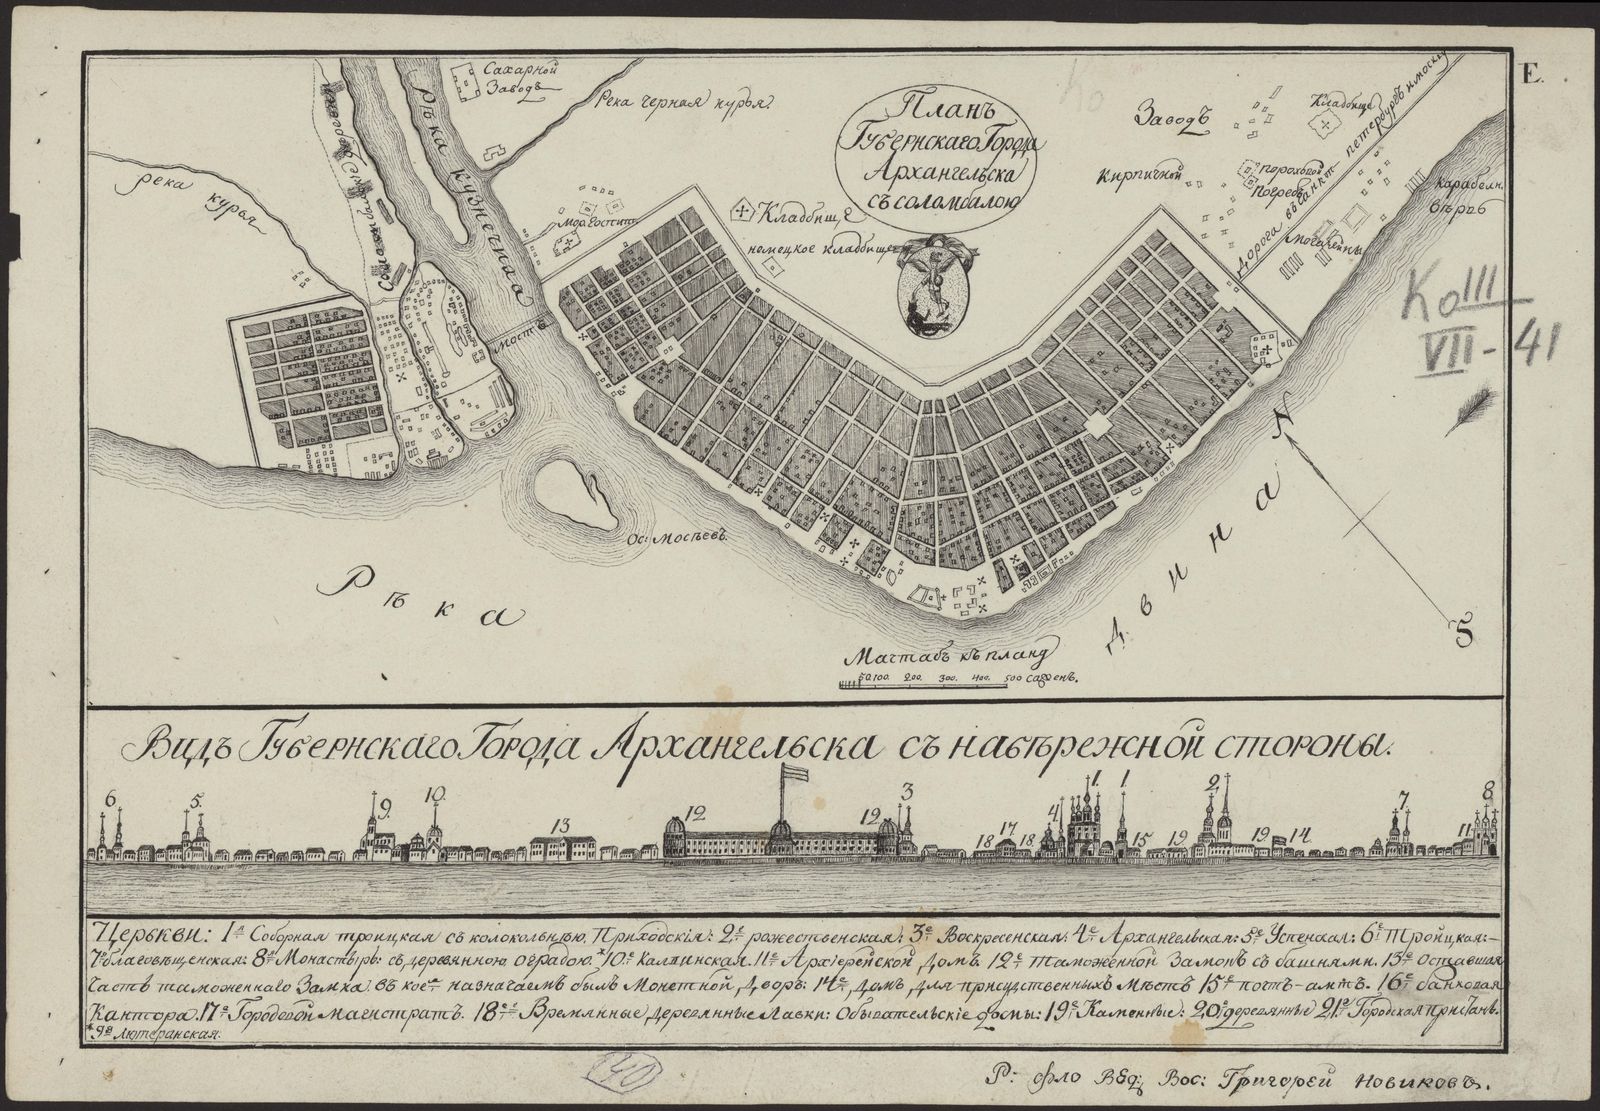 Е.
Планъ
Губернскаго Города
Архангельска
съ соломбалою
Сахарной
Заводъ
Река черная курья
рѣка кузнечиха
река курья
мостъ
Кладбище
немецкое кладбище
Заводъ
кирпичной
Кладбище
пороховой
погребъ
Дорога въ санкт петербургъ и москву
Карабелн.
вѣрфь
Ко III
VII - 41
N
S
Ос: Мосѣевъ.
Рѣка
Двина
Мачтабъ къ плану
50.100. 200. 300. 400. 500 саженъ.
Видъ Губернскаго Города Архангельска съ набѣрежной стороны.
6. 5. 9. 10. 13 12 12 3 18 17 18 4 1. 1 15 19 2 19 14 7 11 8
Церькви: 1я Соборная троицкая съ колокольнею. Приходскія: 2е рожественская: 3е Воскресенская: 4е Архангельская: 5е Успенская: 6е Тройцкая:
7е благовѣщенская: 8й Монастырь съ деревянною оградою. *10е Калвинская. 11е Архіерейской домъ. 12е таможенной Замокъ съ башнями. 13е оставшая
часть таможеннаго Замка въ коей назначаемъ былъ Монетной дворъ: 14е домъ для присудственныхъ мѣстъ 15е почт-амтъ. 16е банковая
Кантора. 17е Городовой магистратъ. 18е Временные деревянные Лавки: Обывательскіе домы: 19е Каменные: 20е деревянные 21е Городская пристань.
*9я лютеранская.
40
Р: Григорей Новиковъ.